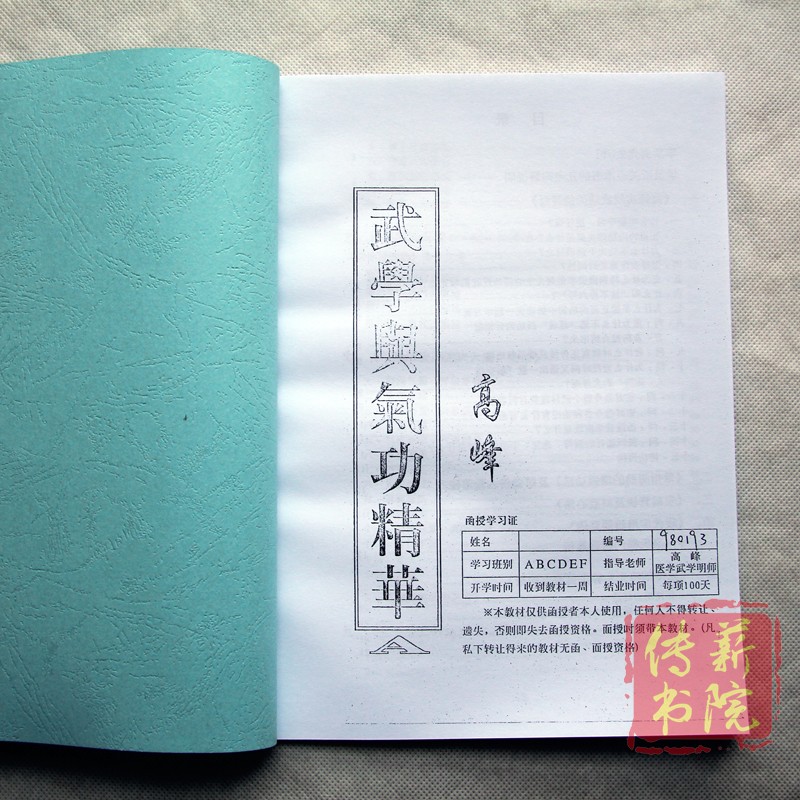 武學與氣功精華
A
高峰
函授学习证
姓名 编号 980193
学习班别 ABCDEF 指导老师 高峰 医学武学明师
开学时间 收到教材一周 结业时间 每项100天
※本教材仅供函授者本人使用，任何人不得转让、
遗失，否则即失去函授资格。面授时须带本教材。(凡
私下转让得来的教材无函、面授资格)
传薪
书院